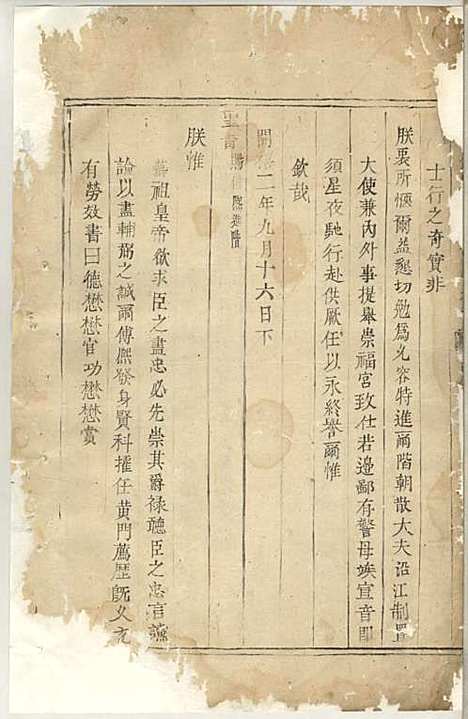 士行之奇實非
朕衷所愜爾益懇切勉爲允容特進爾階朝散大夫沿江制置
大使兼內外事提舉崇福宮致仕若邊鄙有警毋竢宣音即
須星夜馳行赴供厥任以永終譽爾惟
欽哉
開禧二年九月十六日下
聖音
朕惟
藝祖皇帝欲求臣之盡忠必先崇其爵祿聽臣之忠言讜
論以盡輔弼之誠爾傅熙發身賢科擢任黃門薦歷旣久克
有勞效書曰德懋懋官功懋懋賞